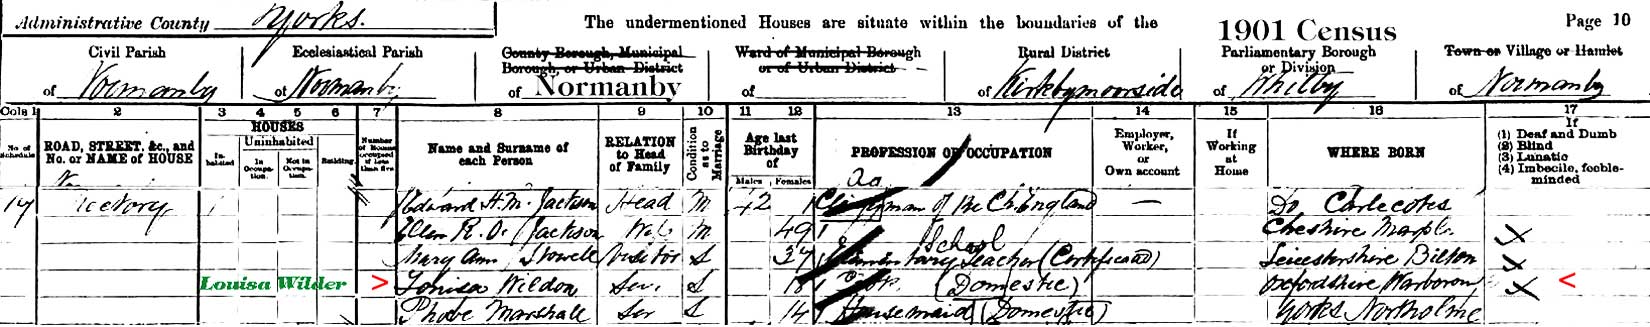 Administrative County Yorks. The undermentioned Houses are situate within the boundaries of the 1901 Census Page 10
Civil Parish Ecclesiastical Parish County Borough, Municipal Borough, or Urban District Ward of Municipal Borough or of Urban District Rural District Parliamentary Borough or Division Town or Village or Hamlet
of Normanby of Normanby of Normanby of of Kirkbymoorside of Whitby of Normanby
Cols 1 2 3 4 5 6 7 8 9 10 11 12 13 14 15 16 17
No. of Schedule ROAD, STREET, &c., and No. or NAME of HOUSE HOUSES Inhabited Uninhabited In Occupation. Not in Occupation. Building. Number of Rooms occupied if less than five Name and Surname of each Person RELATION to Head of Family Condition as to Marriage Age last Birthday of Males Females PROFESSION OR OCCUPATION Employer, Worker, or Own account If Working at Home WHERE BORN If (1) Deaf and Dumb (2) Blind (3) Lunatic (4) Imbecile, feeble-minded
Rectory 1 Edward H. M. Jackson Head M 42 Clergyman of the Ch. England — Do Carlecotes
Ellen R. O. Jackson Wife M 49 Cheshire Marple
School
Mary Ann Visitor S 37 Elementary Teacher (Certificated) Leicestershire
Louisa Wilder > Louisa Wildon Ser. S 18 Cook (Domestic) Oxfordshire Warborough <
Phobe Marshall Ser S 14 Housemaid (Domestic) Yorks